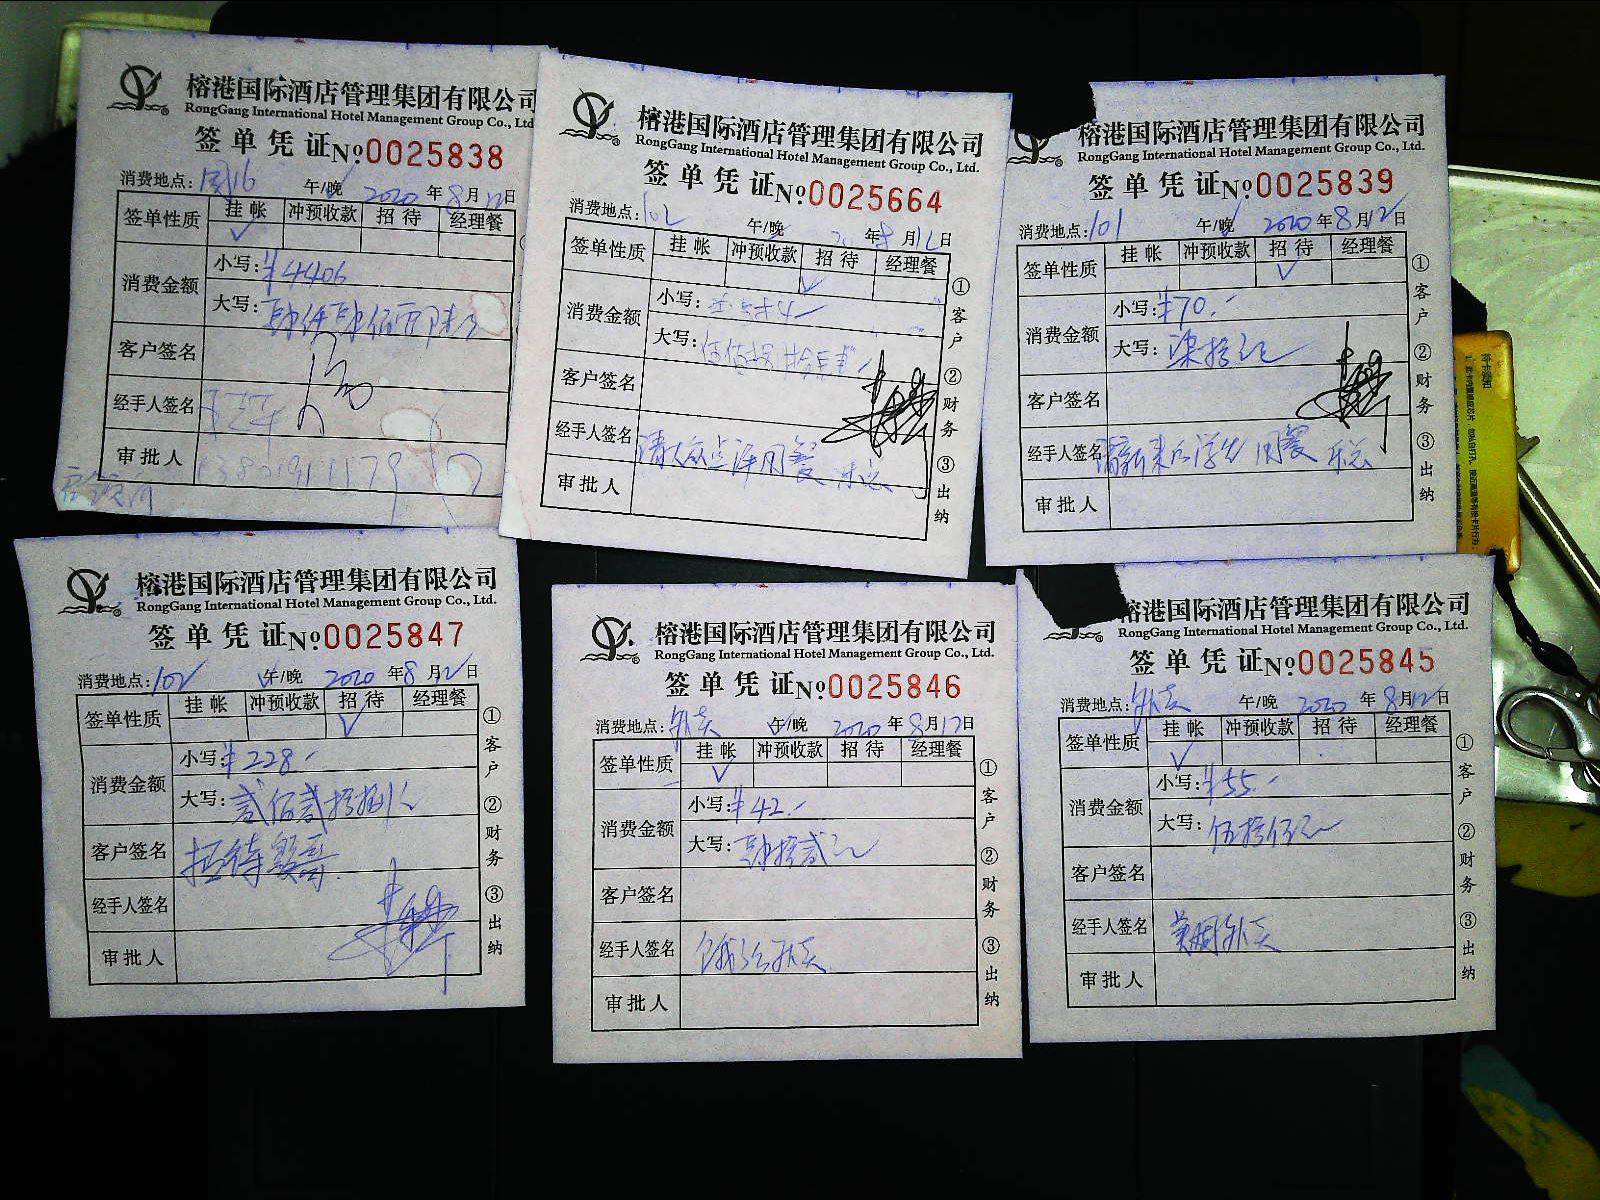 榕港国际酒店管理集团有限公司
RongGang International Hotel Management Group Co., Ltd.
签单凭证 №0025838
消费地点: 16 午/晚 2020年8月12日
签单性质 挂帐 冲预收款 招待 经理餐
✓
消费金额 小写:¥4406
大写:肆仟肆佰零陆元
客户签名
经手人签名
审批人
榕港国际酒店管理集团有限公司
RongGang International Hotel Management Group Co., Ltd.
签单凭证 №0025664
消费地点:102 午/晚 年8月12日
签单性质 挂帐 冲预收款 招待 经理餐
✓
消费金额 小写:
大写:
客户签名
经手人签名 请大众点评用餐
审批人
①客户 ②财务 ③出纳
榕港国际酒店管理集团有限公司
RongGang International Hotel Management Group Co., Ltd.
签单凭证 №0025839
消费地点:101 午/晚 2020年8月12日
签单性质 挂帐 冲预收款 招待 经理餐
✓
消费金额 小写:¥70.-
大写:柒拾元
客户签名
经手人签名 请新来的学生用餐
审批人
①客户 ②财务 ③出纳
榕港国际酒店管理集团有限公司
RongGang International Hotel Management Group Co., Ltd.
签单凭证 №0025847
消费地点:102 午/晚 2020年8月12日
签单性质 挂帐 冲预收款 招待 经理餐
✓
消费金额 小写:¥228.-
大写:贰佰贰拾捌元
客户签名 招待 哥
经手人签名
审批人
①客户 ②财务 ③出纳
榕港国际酒店管理集团有限公司
RongGang International Hotel Management Group Co., Ltd.
签单凭证 №0025846
消费地点:外卖 午/晚 2020年8月12日
签单性质 挂帐 冲预收款 招待 经理餐
✓
消费金额 小写:¥42.-
大写:肆拾贰元
客户签名
经手人签名 饿了么外卖
审批人
①客户 ②财务 ③出纳
榕港国际酒店管理集团有限公司
RongGang International Hotel Management Group Co., Ltd.
签单凭证 №0025845
消费地点:外卖 午/晚 2020年8月12日
签单性质 挂帐 冲预收款 招待 经理餐
✓
消费金额 小写:¥55.-
大写:伍拾伍元
客户签名
经手人签名 美团外卖
审批人
①客户 ②财务 ③出纳